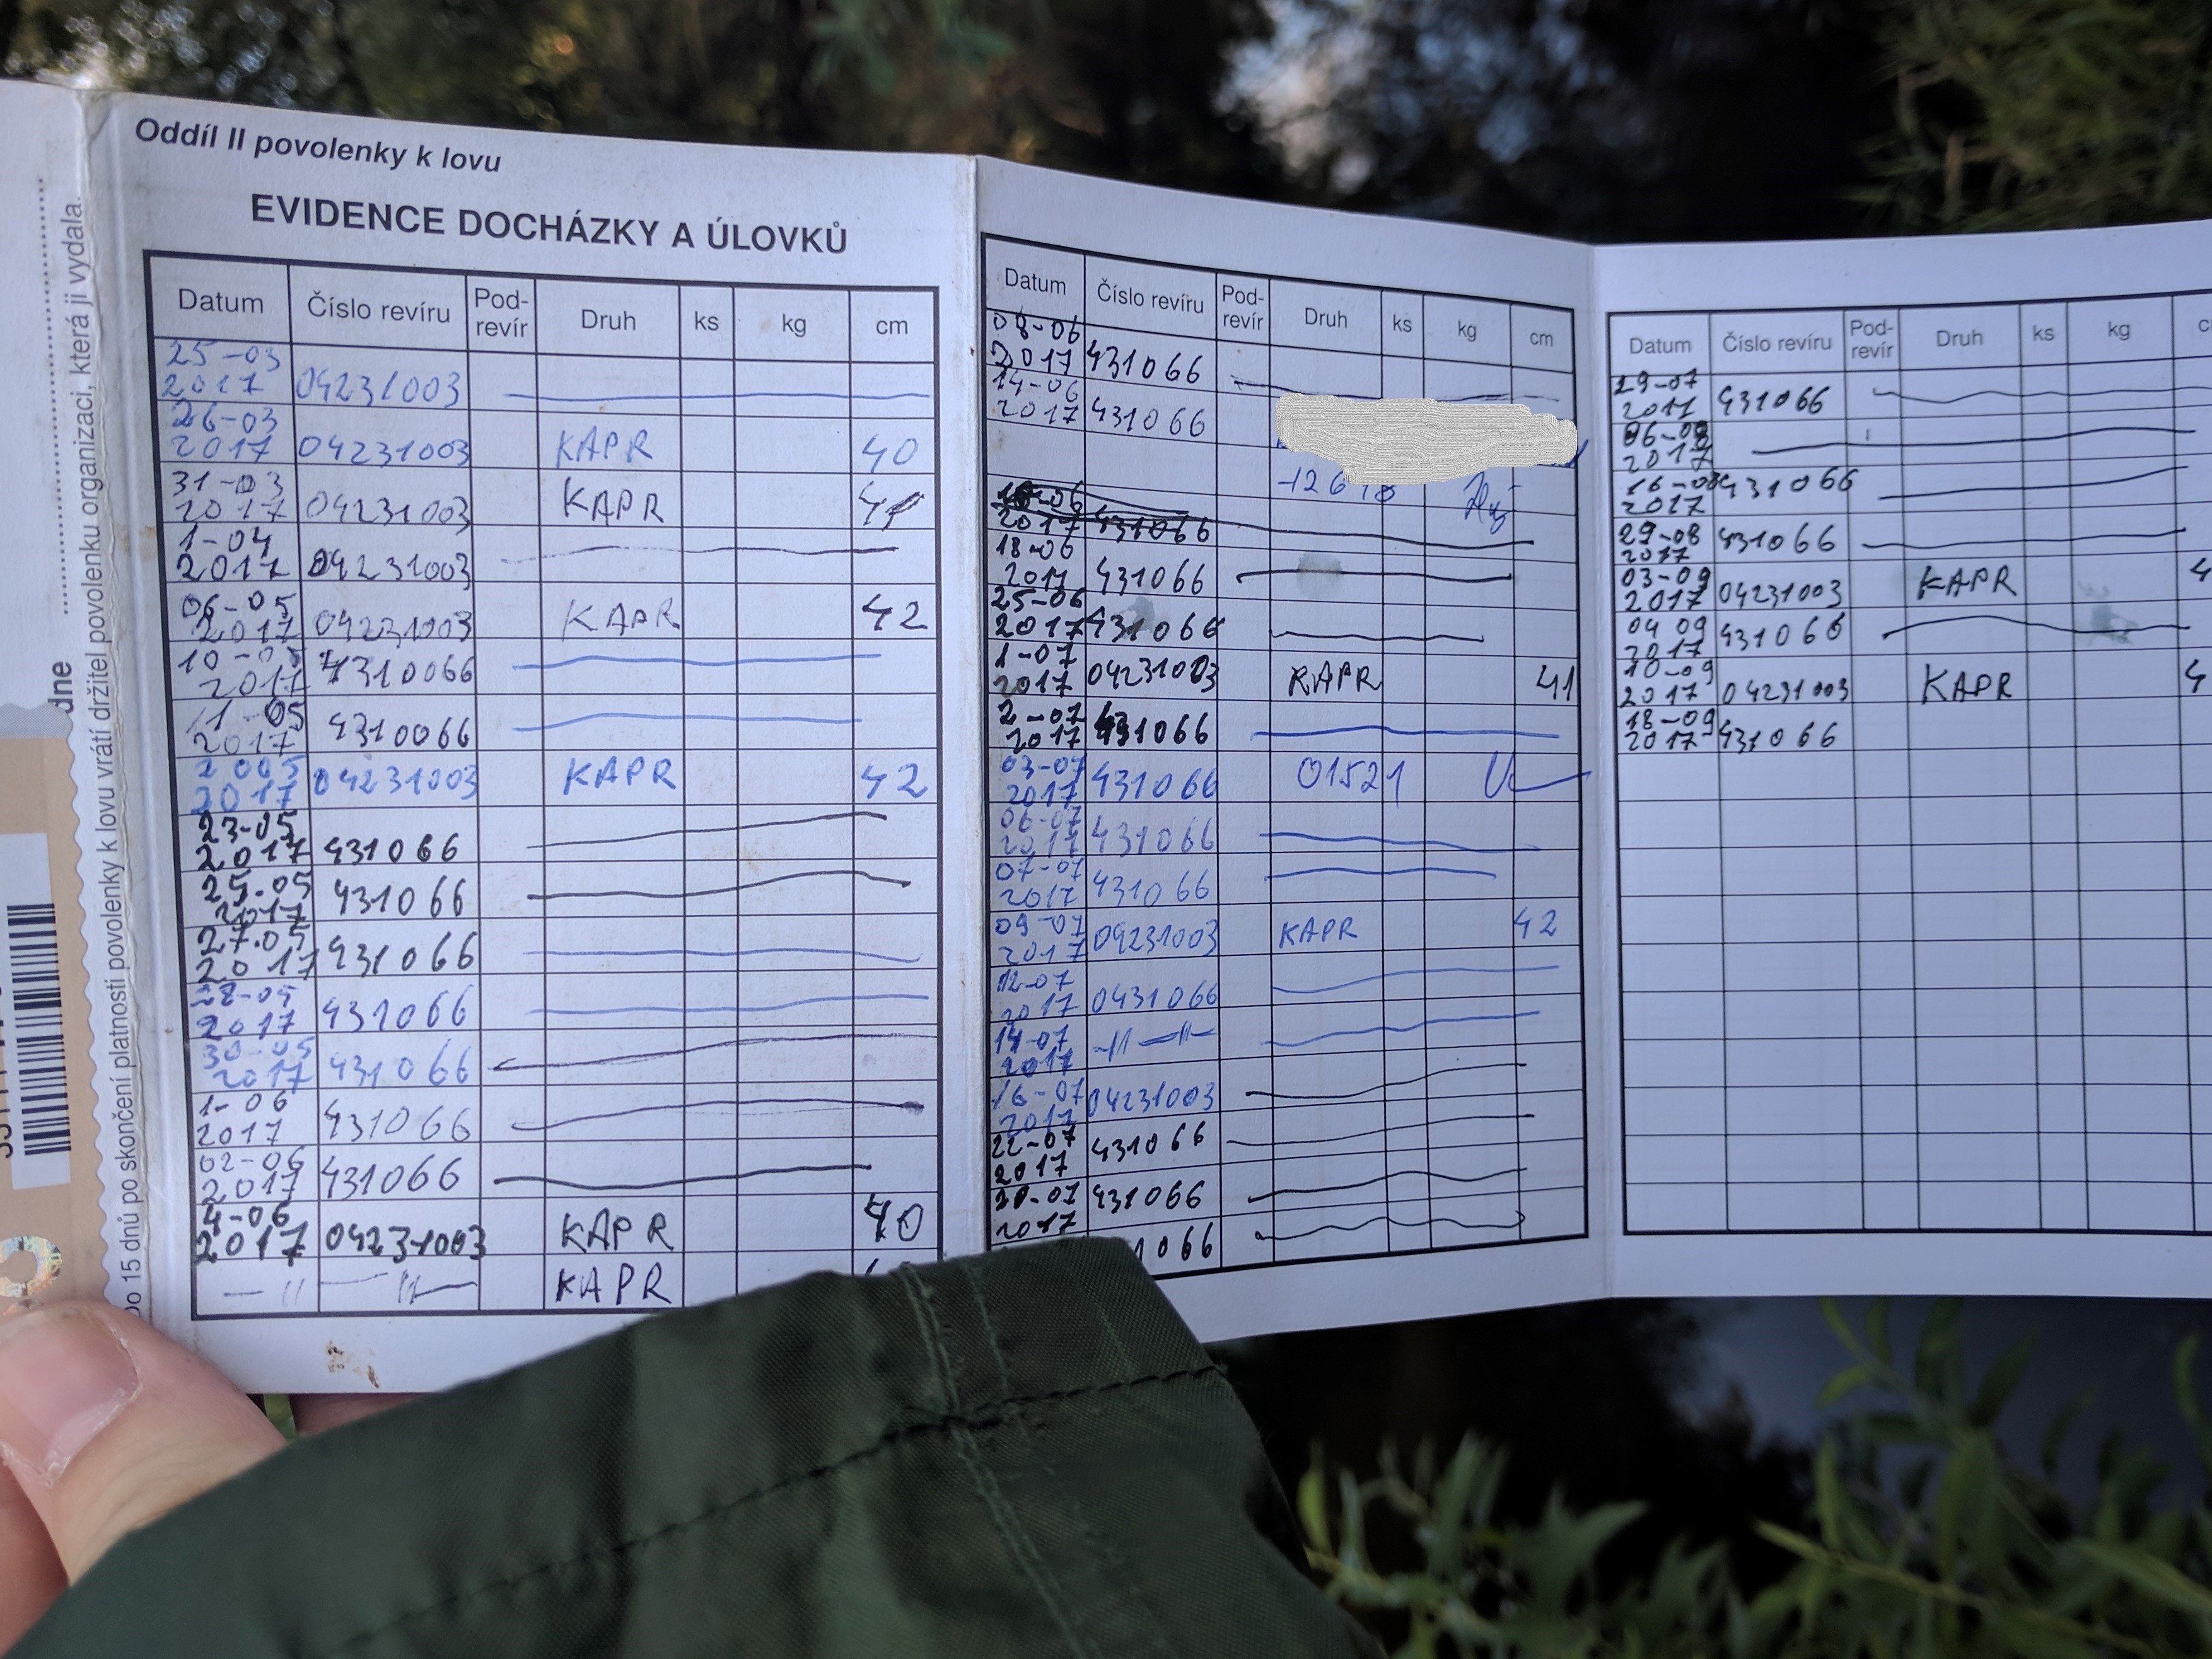 Oddíl II povolenky k lovu
EVIDENCE DOCHÁZKY A ÚLOVKŮ
Do 15 dnů po skončení platnosti povolenky k lovu vrátí držitel povolenku organizaci, která ji vydala.
dne
Datum Číslo revíru Pod-revír Druh ks kg cm
25-03 2017 04231003
26-03 2017 04231003 KAPR 40
31-03 2017 04231003 KAPR
1-04 2017 04231003
06-05 2017 04231003 KAPR 42
10-05 2017 4310066
11-05 2017 4310066
2005 2017 04231003 KAPR 42
23-05 2017 431066
25.05 2017 431066
27.05 2017 431066
28-05 2017 431066
30-05 2017 431066
1-06 2017 431066
02-06 2017 431066
4-06 2017 04231003 KAPR 40
— 11 — 11 — KAPR
Datum Číslo revíru Pod-revír Druh ks kg cm
08-06 2017 431066
14-06 2017 431066
2017 431066
18-06 2017 431066
25-06 2017 431066
1-07 2017 04231003 KAPR 41
2-07 2017 431066
03-07 2017 431066 01521
06-07 2017 431066
07-07 2017 431066
09-07 2017 04231003 KAPR 42
12-07 2017 0431066
14-07 2017 -11-11-
16-07 2017 04231003
22-07 2017 431066
2017 431066
1066
Datum Číslo revíru Pod-revír Druh ks kg
29-07 2017 431066
2017
16-08 2017 431066
29-08 2017 431066
03-09 2017 04231003 KAPR 4
04 09 2017 431066
10-09 2017 04231003 KAPR 4
18-09 2017 431066